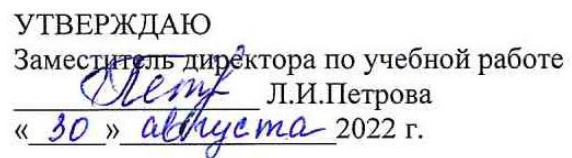 УТВЕРЖДАЮ
Заместитель директора по учебной работе
Петр Л.И.Петрова
« 30 » августа 2022 г.